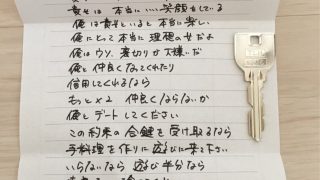 貴女は 本当に いい笑顔をしている
俺は貴女といると本当に楽しい
俺にとって本当に理想の女だよ
俺はウソ、裏切りが大嫌いだ
俺と仲良くなってくれたり
信用してくれるなら
もっと×2 仲良くならないか
俺とデートしてください
この約束の合鍵を受け取るなら
手料理を作りに遊びに来て下さい
いらないなら 遊び半分なら